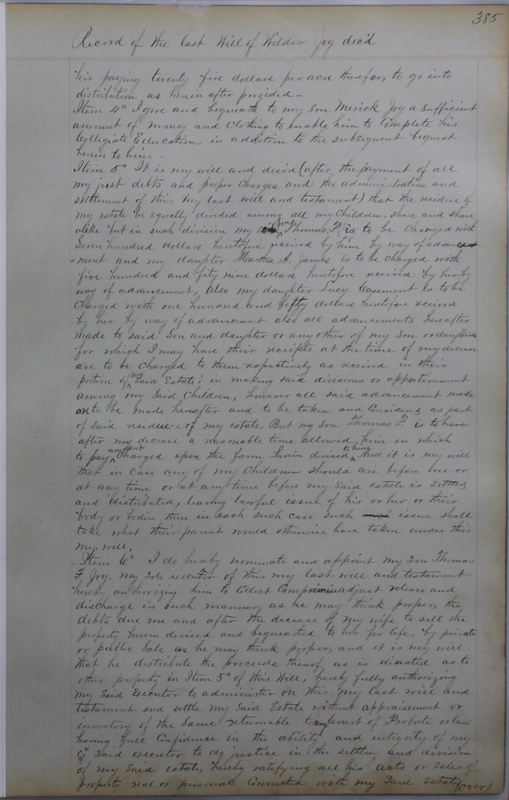 385
Record of the last Will of Wilder Joy dec'd
his paying twenty five dollars per acre therefor, to go into
distribution as herein after provided -
Item 4" I give and bequeath to my Son Merick Joy a sufficient
amount of money and Clothing to enable him to Complete his
Collegiate Education in addition to the subsequent bequest
herein to him -
Item 5" It is my will and desire (after the payment of all
my just debts and proper Charges and the administration and
settlement of this my last will and testament) that the residue of
my estate be equally divided among all my Children, share and share
alike but in such division my son Thomas F. is to be charged with
Seven hundred dollars heretofore received by him by way of advance
-ment and my daughter Martha A. James is to be charged with
five hundred and fifty nine dollars heretofore received by her by
way of advancement, Also my daughter Lucy Casement is to be
Charged with one hundred and fifty dollars heretofore received
by her by way of advancement also all advancements hereafter
made to said Son and daughter or any other of my Son or daughters
for which I may have their receipts at the time of my decease
are to be charged to them respectively as received in their
portion of said Estate; in making said divisions or apportionment
among my Said Children, however all said advancement made
or to be made hereafter and to be taken and Considered as part
of said residue of my estate. But my son Thomas F. is to have
after my decease a reasonable time allowed him in which
to pay amount Charged upon the farm herein devised to him And it is my will
that in case any of my Children should die before me or
at any time or at any time before my said estate is settled
and distributed, leaving lawful issue of his or her or their
body or bodies then in each such case such issue shall
take what their parent would otherwise have taken under this
my will.
Item 6" I do hereby nominate and appoint my Son Thomas
F. Joy. my Sole executor of this my last will and testament
hereby authorizing him to Collect Compromise adjust release and
discharge in such manner as he may think proper the
debts due me and after the decease of my wife to sell the
property herein devised and bequeathed to her for life, by private
or public Sale as he may think proper, and it is my will
that he distribute the proceeds thereof as is directed as to
other property in Item 5" of this Will, hereby fully authorizing
my Said Executor to administer on this my last will and
testament and settle my Said Estate without appraisement or
inventory of the Same returnable to any Court of Probate or law
having full Confidence in the ability and integrity of my
Said Executor to do justice in the settling and division
of my Said estate, hereby ratifying all his acts or Sales of
property real or personal Connected with my Said Estate (over)